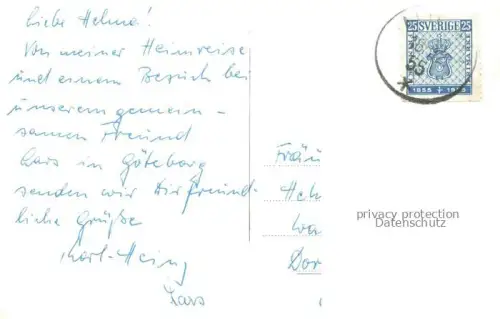 Liebe Helma!
Von meiner Heimreise
und einem Besuch bei
unserem gemein-
samen Freund
Lars in Göteborg
senden wir Dir freund-
liche Grüße
Karl-Heinz
Lars
25 SVERIGE 25
FRIMÄRKE
1855 + 1955
55
Fräu
Hel
Dor
privacy protection
Datenschutz